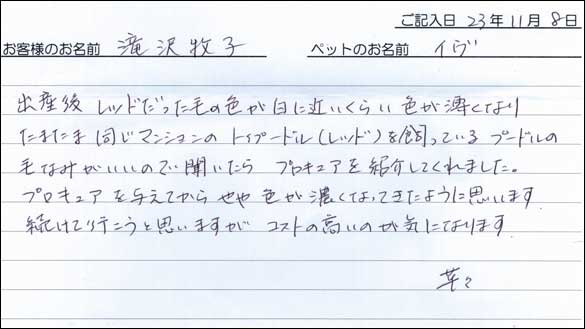 ご記入日 23年11月8日
お客様のお名前 滝沢牧子 ペットのお名前 イヴ
出産後 レッドだった毛の色が白に近いくらい色が薄くなり
たまたま同じマンションのトイプードル(レッド)を飼っているプードルの
毛なみがいいので聞いたら プロキュアを紹介してくれました。
プロキュアを与えてから やや色が濃くなってきたように思います
続けて行こうと思いますが コストの高いのが気になります
草々